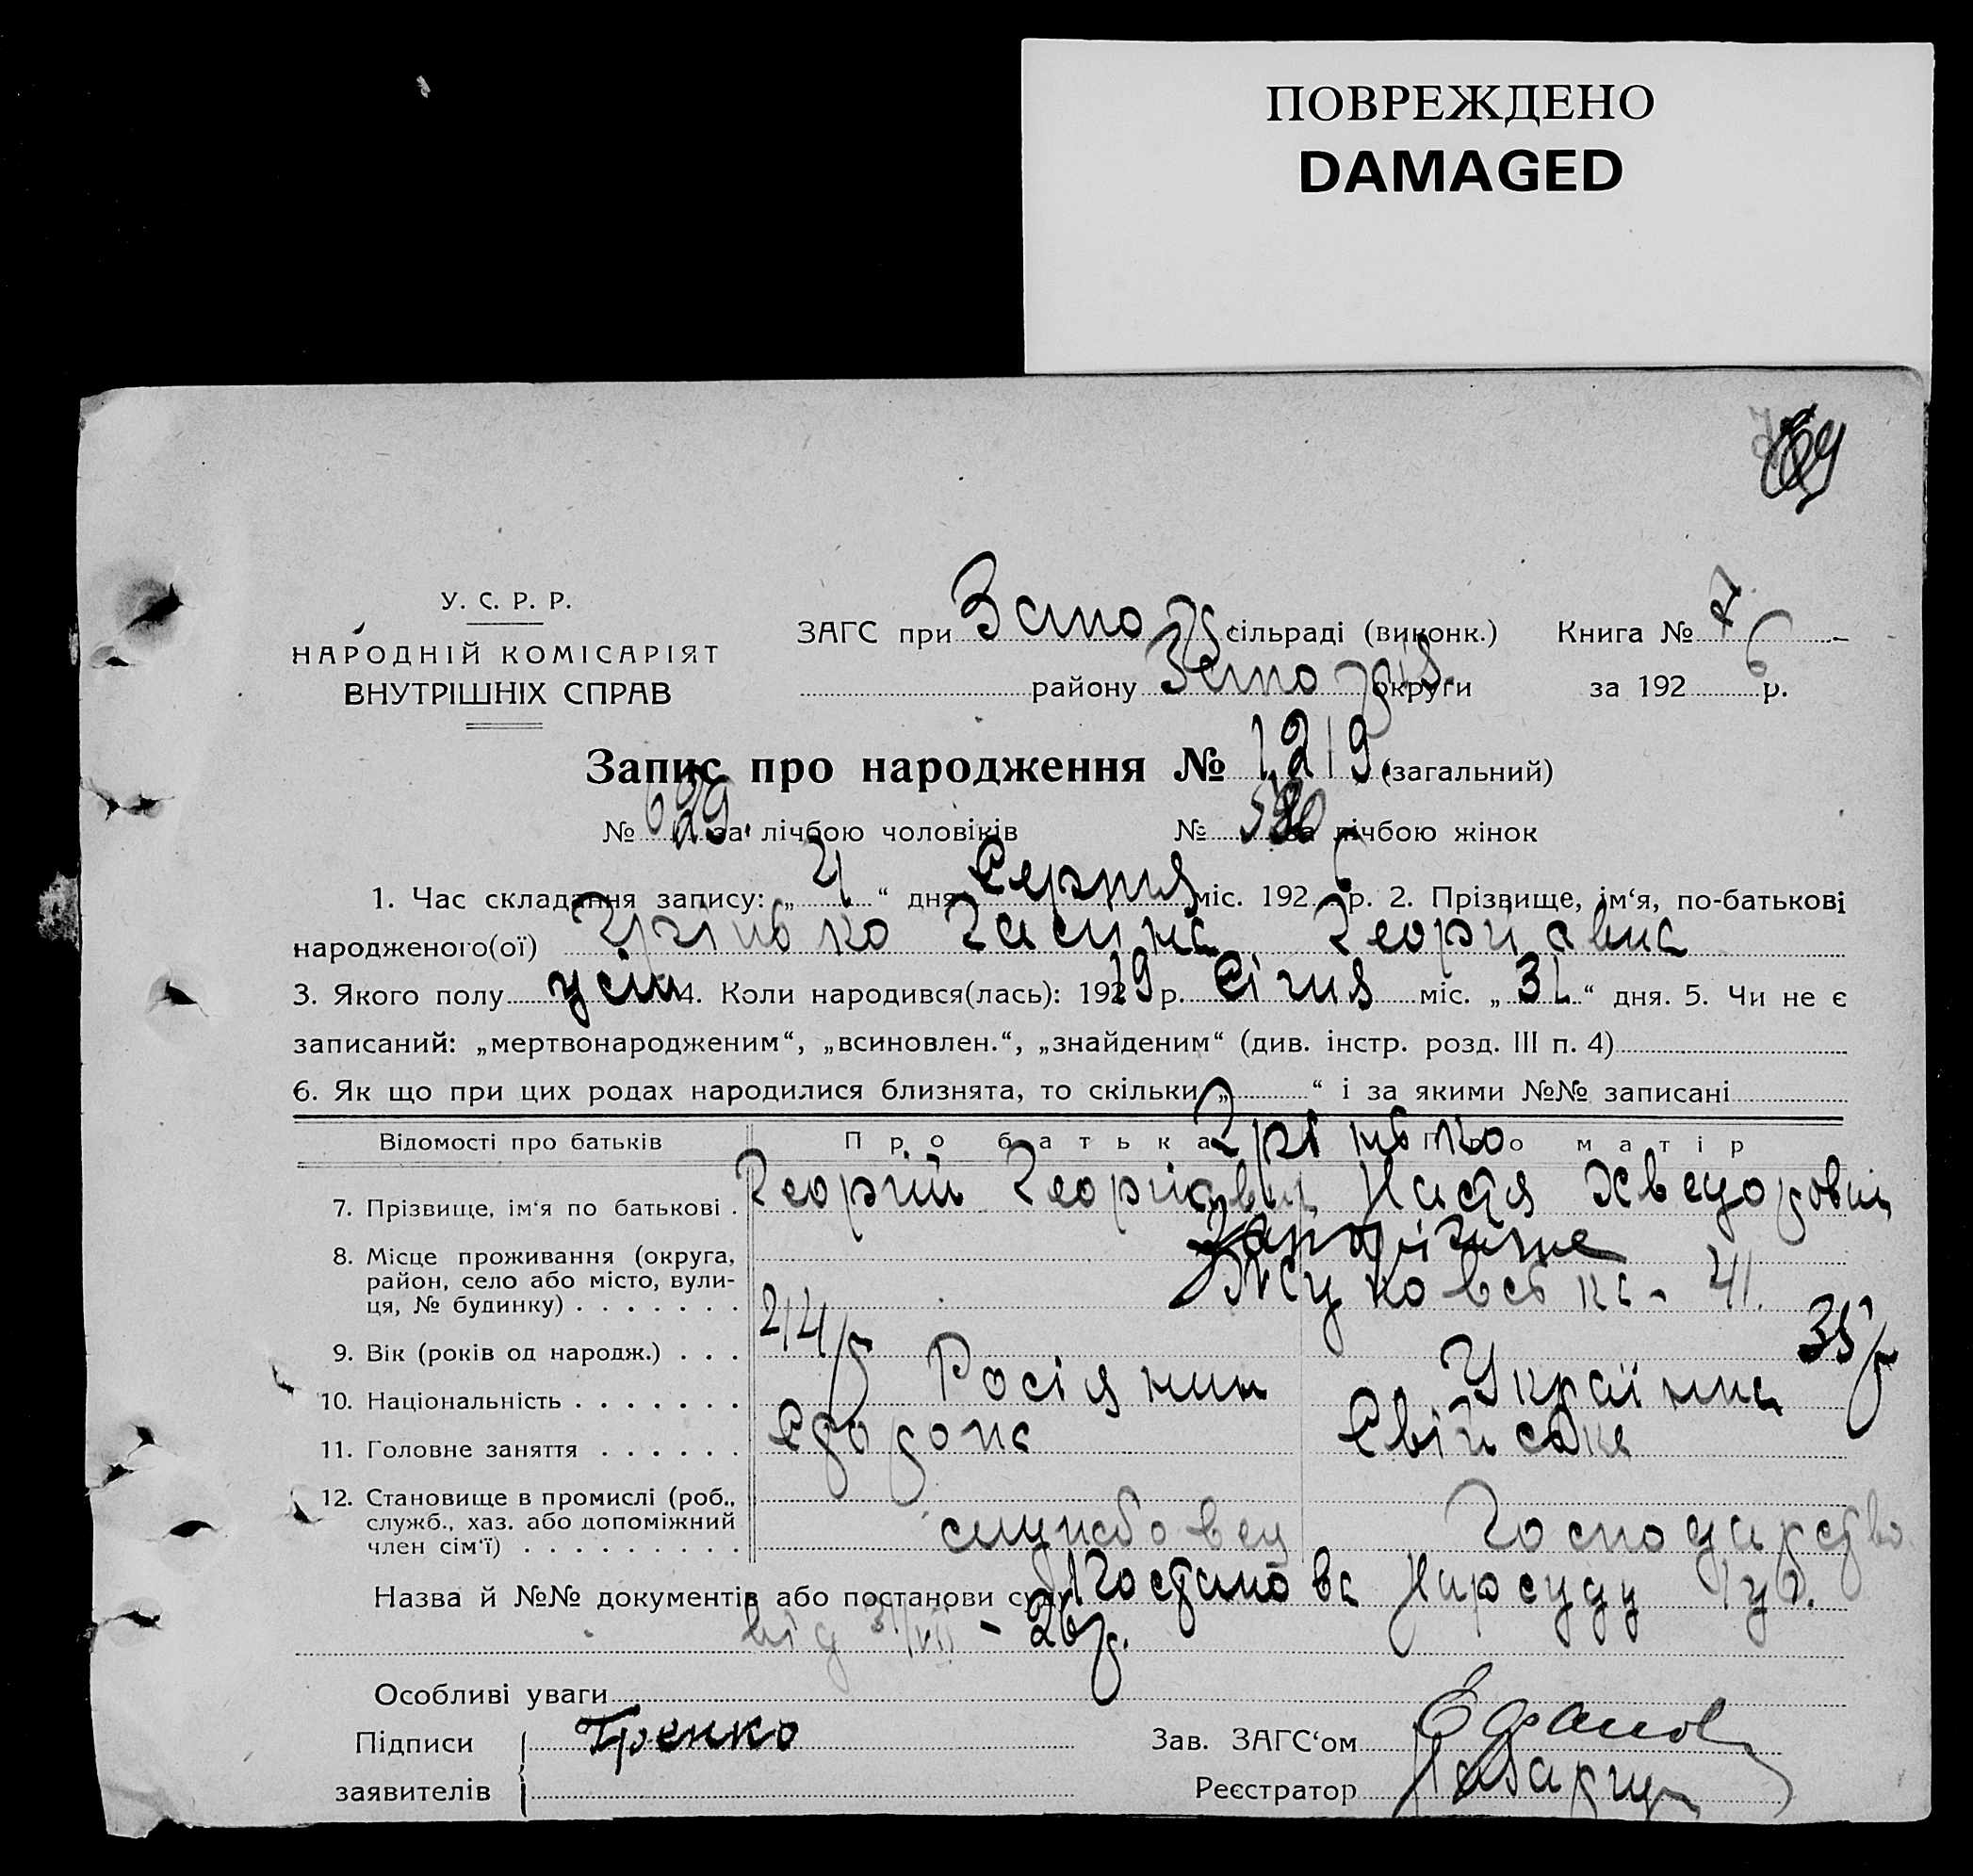 ПОВРЕЖДЕНО
DAMAGED
У. С. Р. Р.
НАРОДНІЙ КОМІСАРІЯТ
ВНУТРІШНІХ СПРАВ
ЗАГС при Запо сільраді (виконк.) Книга № 7
району Запо округи за 1926 р.
Запис про народження № 1219 (загальний)
№ 629 за лічбою чоловіків № за лічбою жінок
1. Час складання запису: „ 4 “ дня Серпня міс. 1926 р. 2. Прізвище, ім‘я, по-батькові
народженого(ої) Галина Георгіевна
3. Якого полу жін 4. Коли народився(лась): 1919 р. Січня міс. „ 31 “ дня. 5. Чи не є
записаний: „мертвонародженим“, „всиновлен.“, „знайденим“ (див. інстр. розд. III п. 4)
6. Як що при цих родах народилися близнята, то скільки „ “ і за якими №№ записані
Відомості про батьків Про батька Про матір
7. Прізвище, ім‘я по батькові . Георгій Георгіевич Настя Хведоровна
8. Місце проживання (округа,
район, село або місто, вули-
ця, № будинку) . . . . . . . Жуковська - 41.
9. Вік (років од народж.) . . . 35
10. Національність . . . . . . . Росіянин Українка
11. Головне заняття . . . . . . Сторож Свійське
12. Становище в промислі (роб.,
служб., хаз. або допоміжний
член сім‘ї) . . . . . . . . . службовец Господарство
Назва й №№ документів або постанови суду Постанова Нарсуду
від 31/VII - 26 р.
Особливі уваги
Підписи
заявителів
Зав. ЗАГС‘ом
Реєстратор